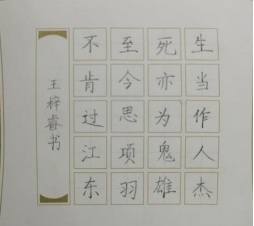 生当作人杰
死亦为鬼雄
至今思项羽
不肯过江东
王梓睿书